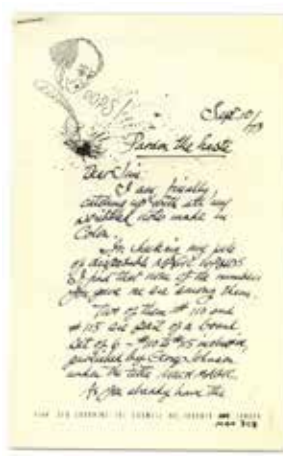 OOPS!
Sept 10/
Pardon the haste
Dear Jim:
I am finally,
catching up with all my
scribbled notes made in
Colon.
In checking my pile
of
I find that none of the numbers
you gave me are among them.
Two of them # 110 and
# 115 are part of a bound
set of 6 – #110 to #115 inclusive,
published by George Johnson
under the title
As you already have the